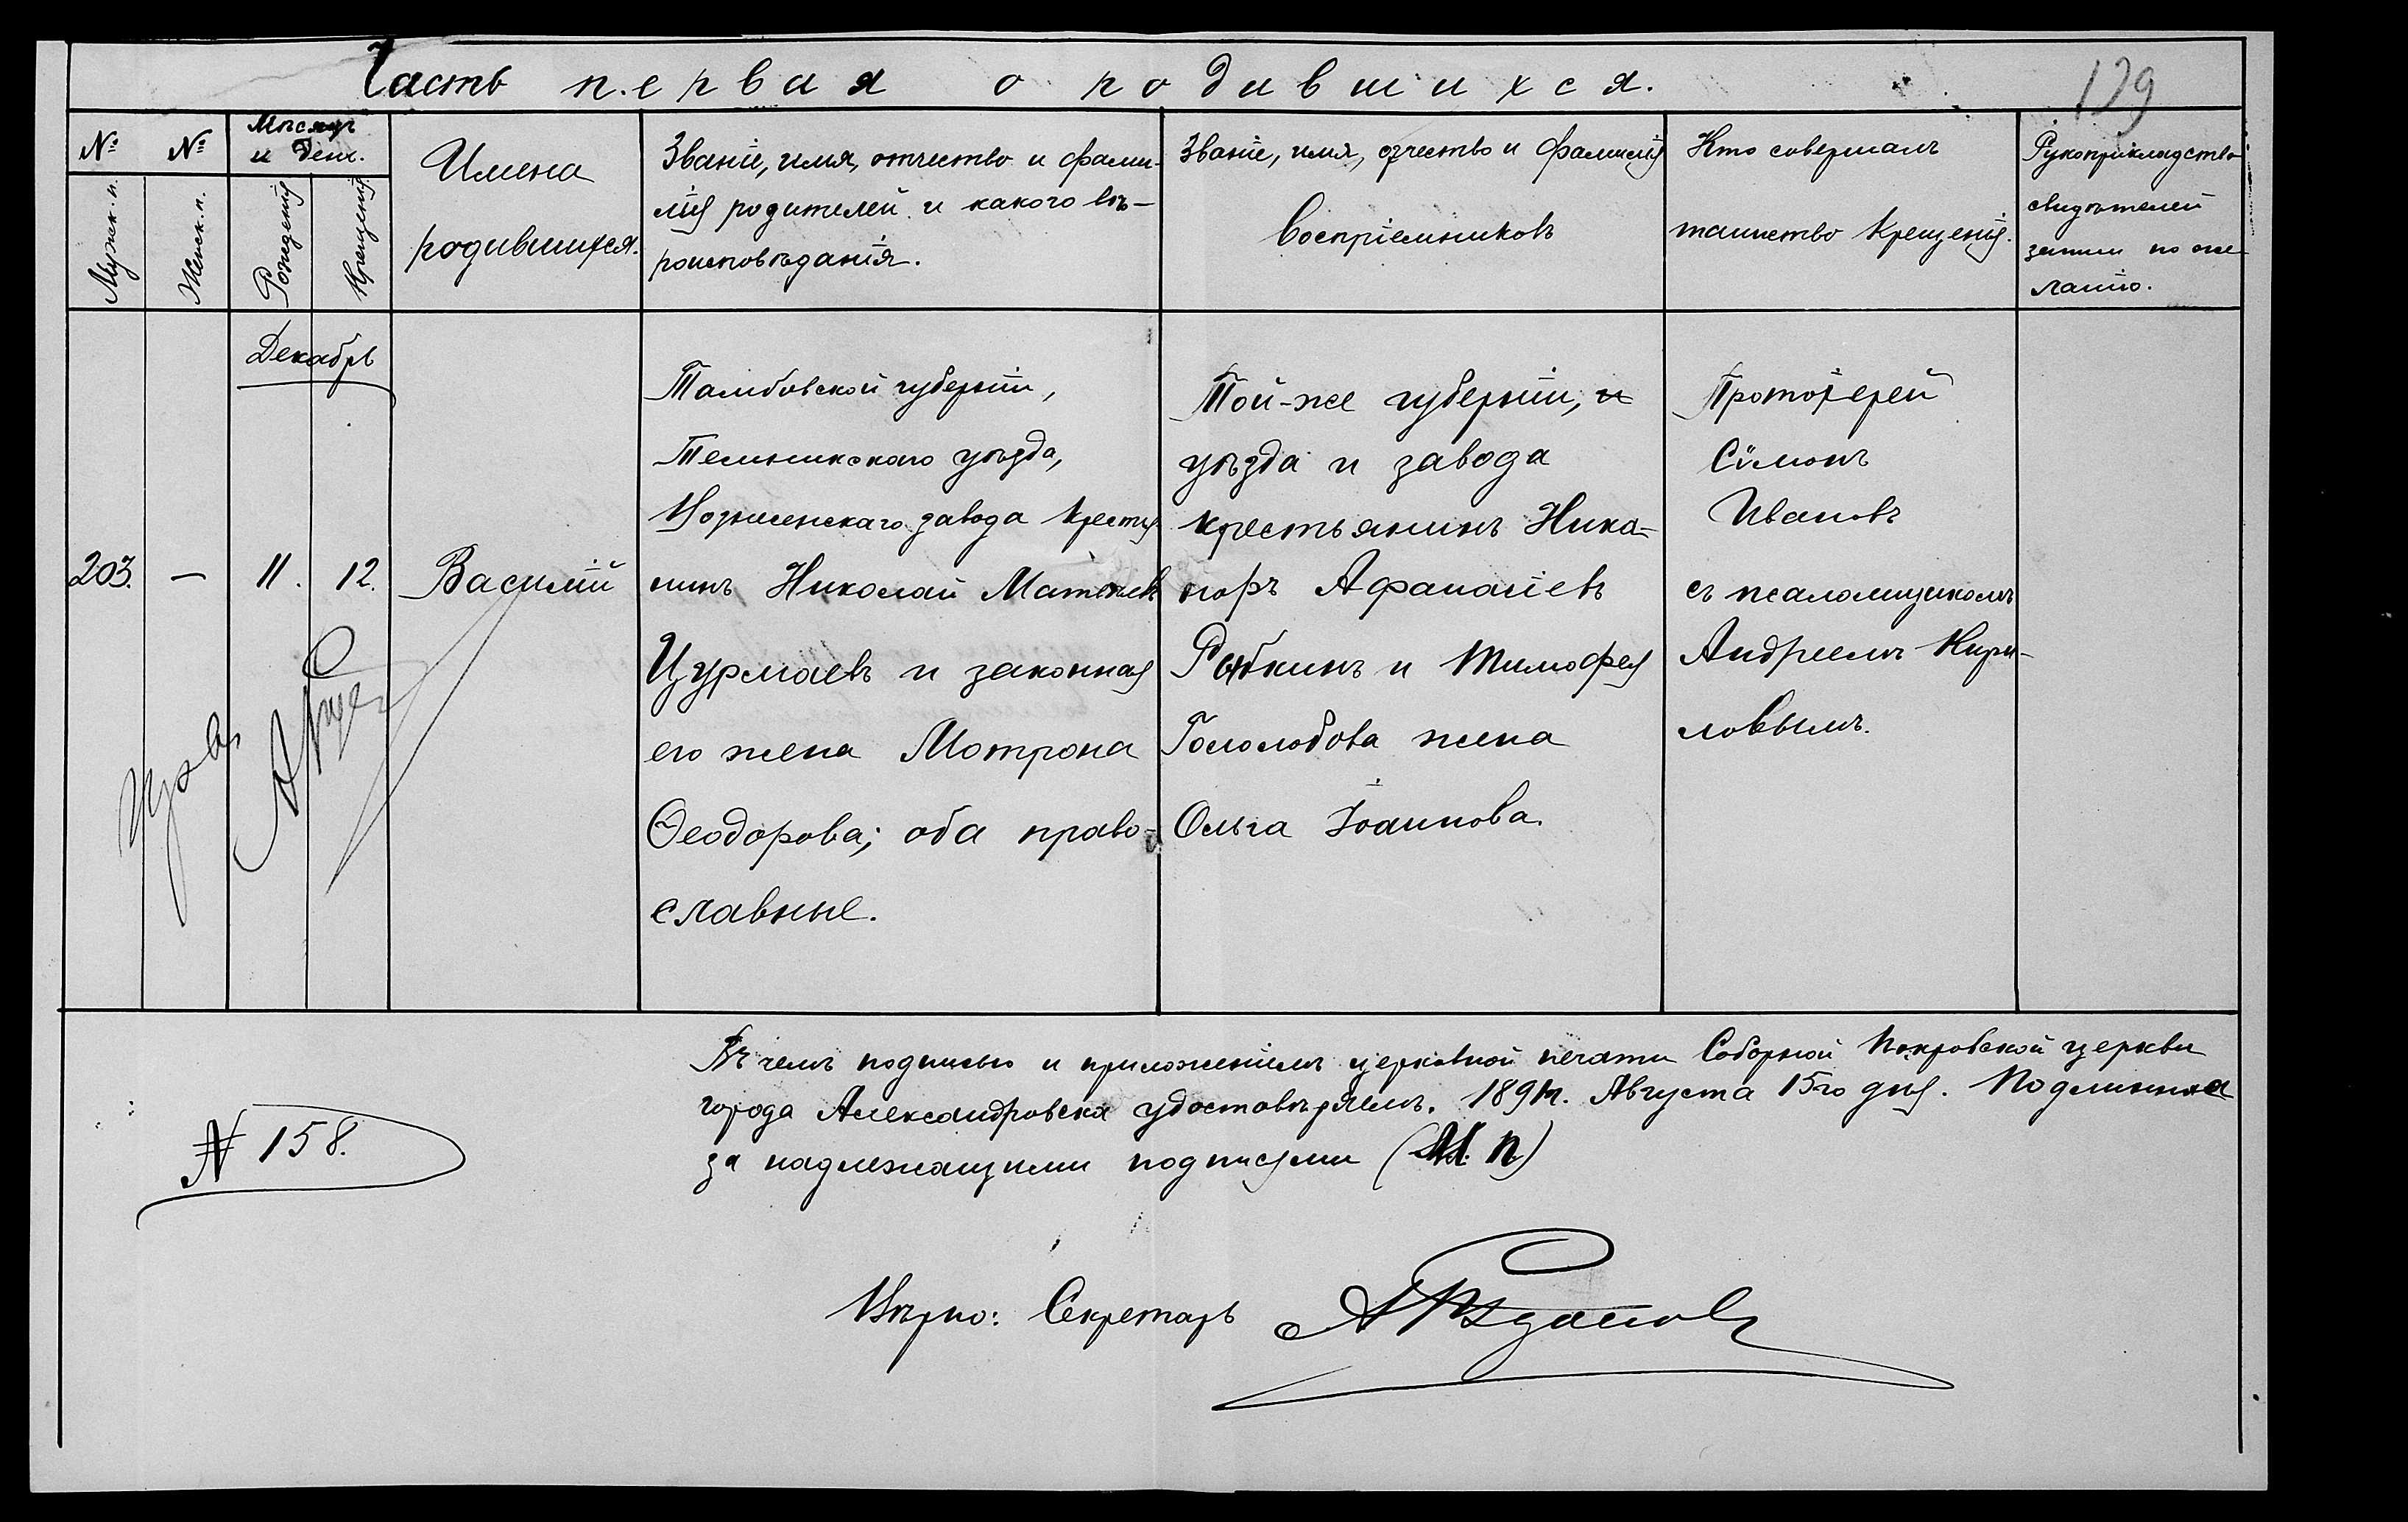 Часть первая о родившихся.
139
№
№
Мѣсяцъ
и день.
Мужск. п.
Женск. п.
Рожденія
Крещенія
Имена
родившихся.
Званіе, имя, отчество и фами-
лія родителей и какого вѣ-
роисповѣданія.
Званіе, имя, отчество и фамилія
воспріемниковъ
Кто совершалъ
таинство крещенія.
Рукоприкладство
свидѣтелей
записи по же
ланію.
Декабрь
203.
—
11.
12.
Василій
Тамбовской губерніи,
Темникскаго уѣзда,
завода крестья
нинъ Николай Матвѣевъ
Цурмаевъ и законная
его жена Мотрона
Ѳеодорова; оба право-
славные.
Той-же губерніи, и
уѣзда и завода
крестьянинъ Ника-
норъ Афанасіевъ
Рыбкинъ и Тимофея
Гололобова жена
Ольга Іоаннова.
Протоіерей
Сѵмонъ
Ивановъ
съ псаломщикомъ
Андреемъ Кири-
ловымъ.
Въ чемъ подписью и приложеніемъ церковной печати Соборной Покровской церкви
города Александровска удостовѣряемъ. Августа 15го дня. Подлинная
за надлежащими подписями (М. п)
№ 158.
Вѣрно: Секретарь